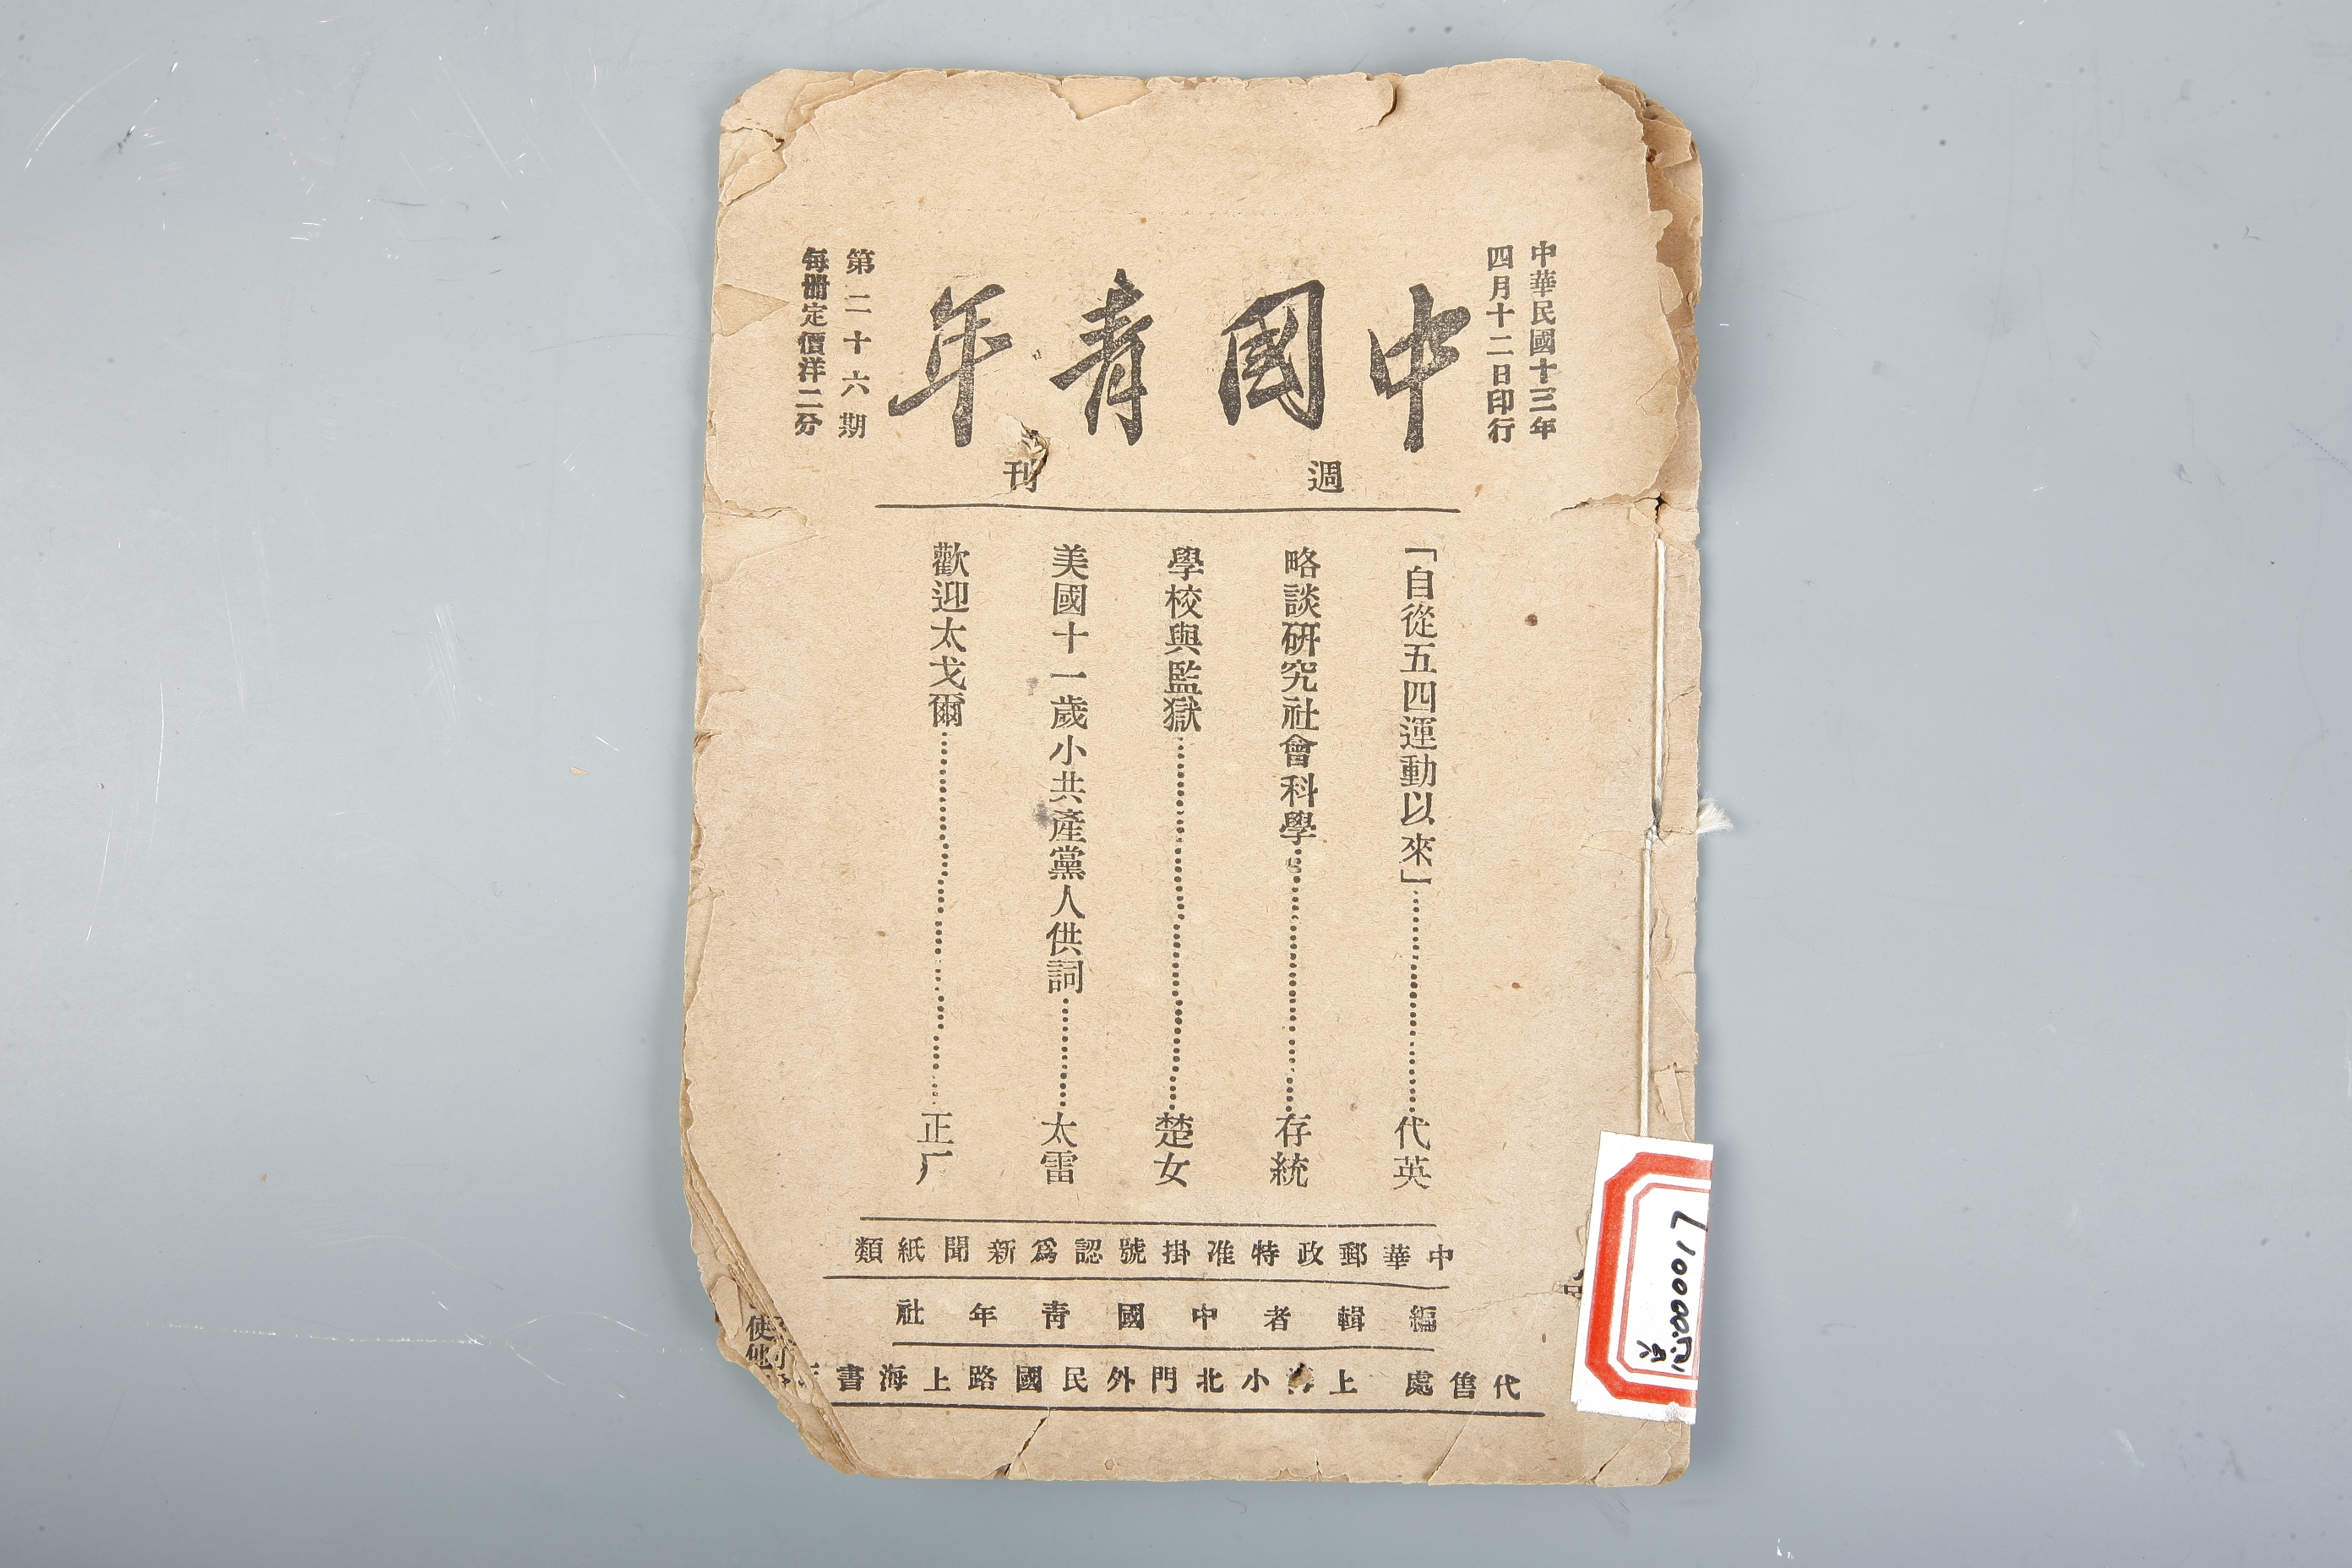 中華民國十三年
四月十二日印行
中國青年
週刊
第二十六期
每册定價洋二分
「自從五四運動以來」……代英
略談研究社會科學……存統
學校與監獄……楚女
美國十一歲小共產黨人供詞……太雷
歡迎太戈爾……正厂
中華郵政特准掛號認爲新聞紙類
編輯者中國青年社
代售處 上海小北門外民國路上海書
使他